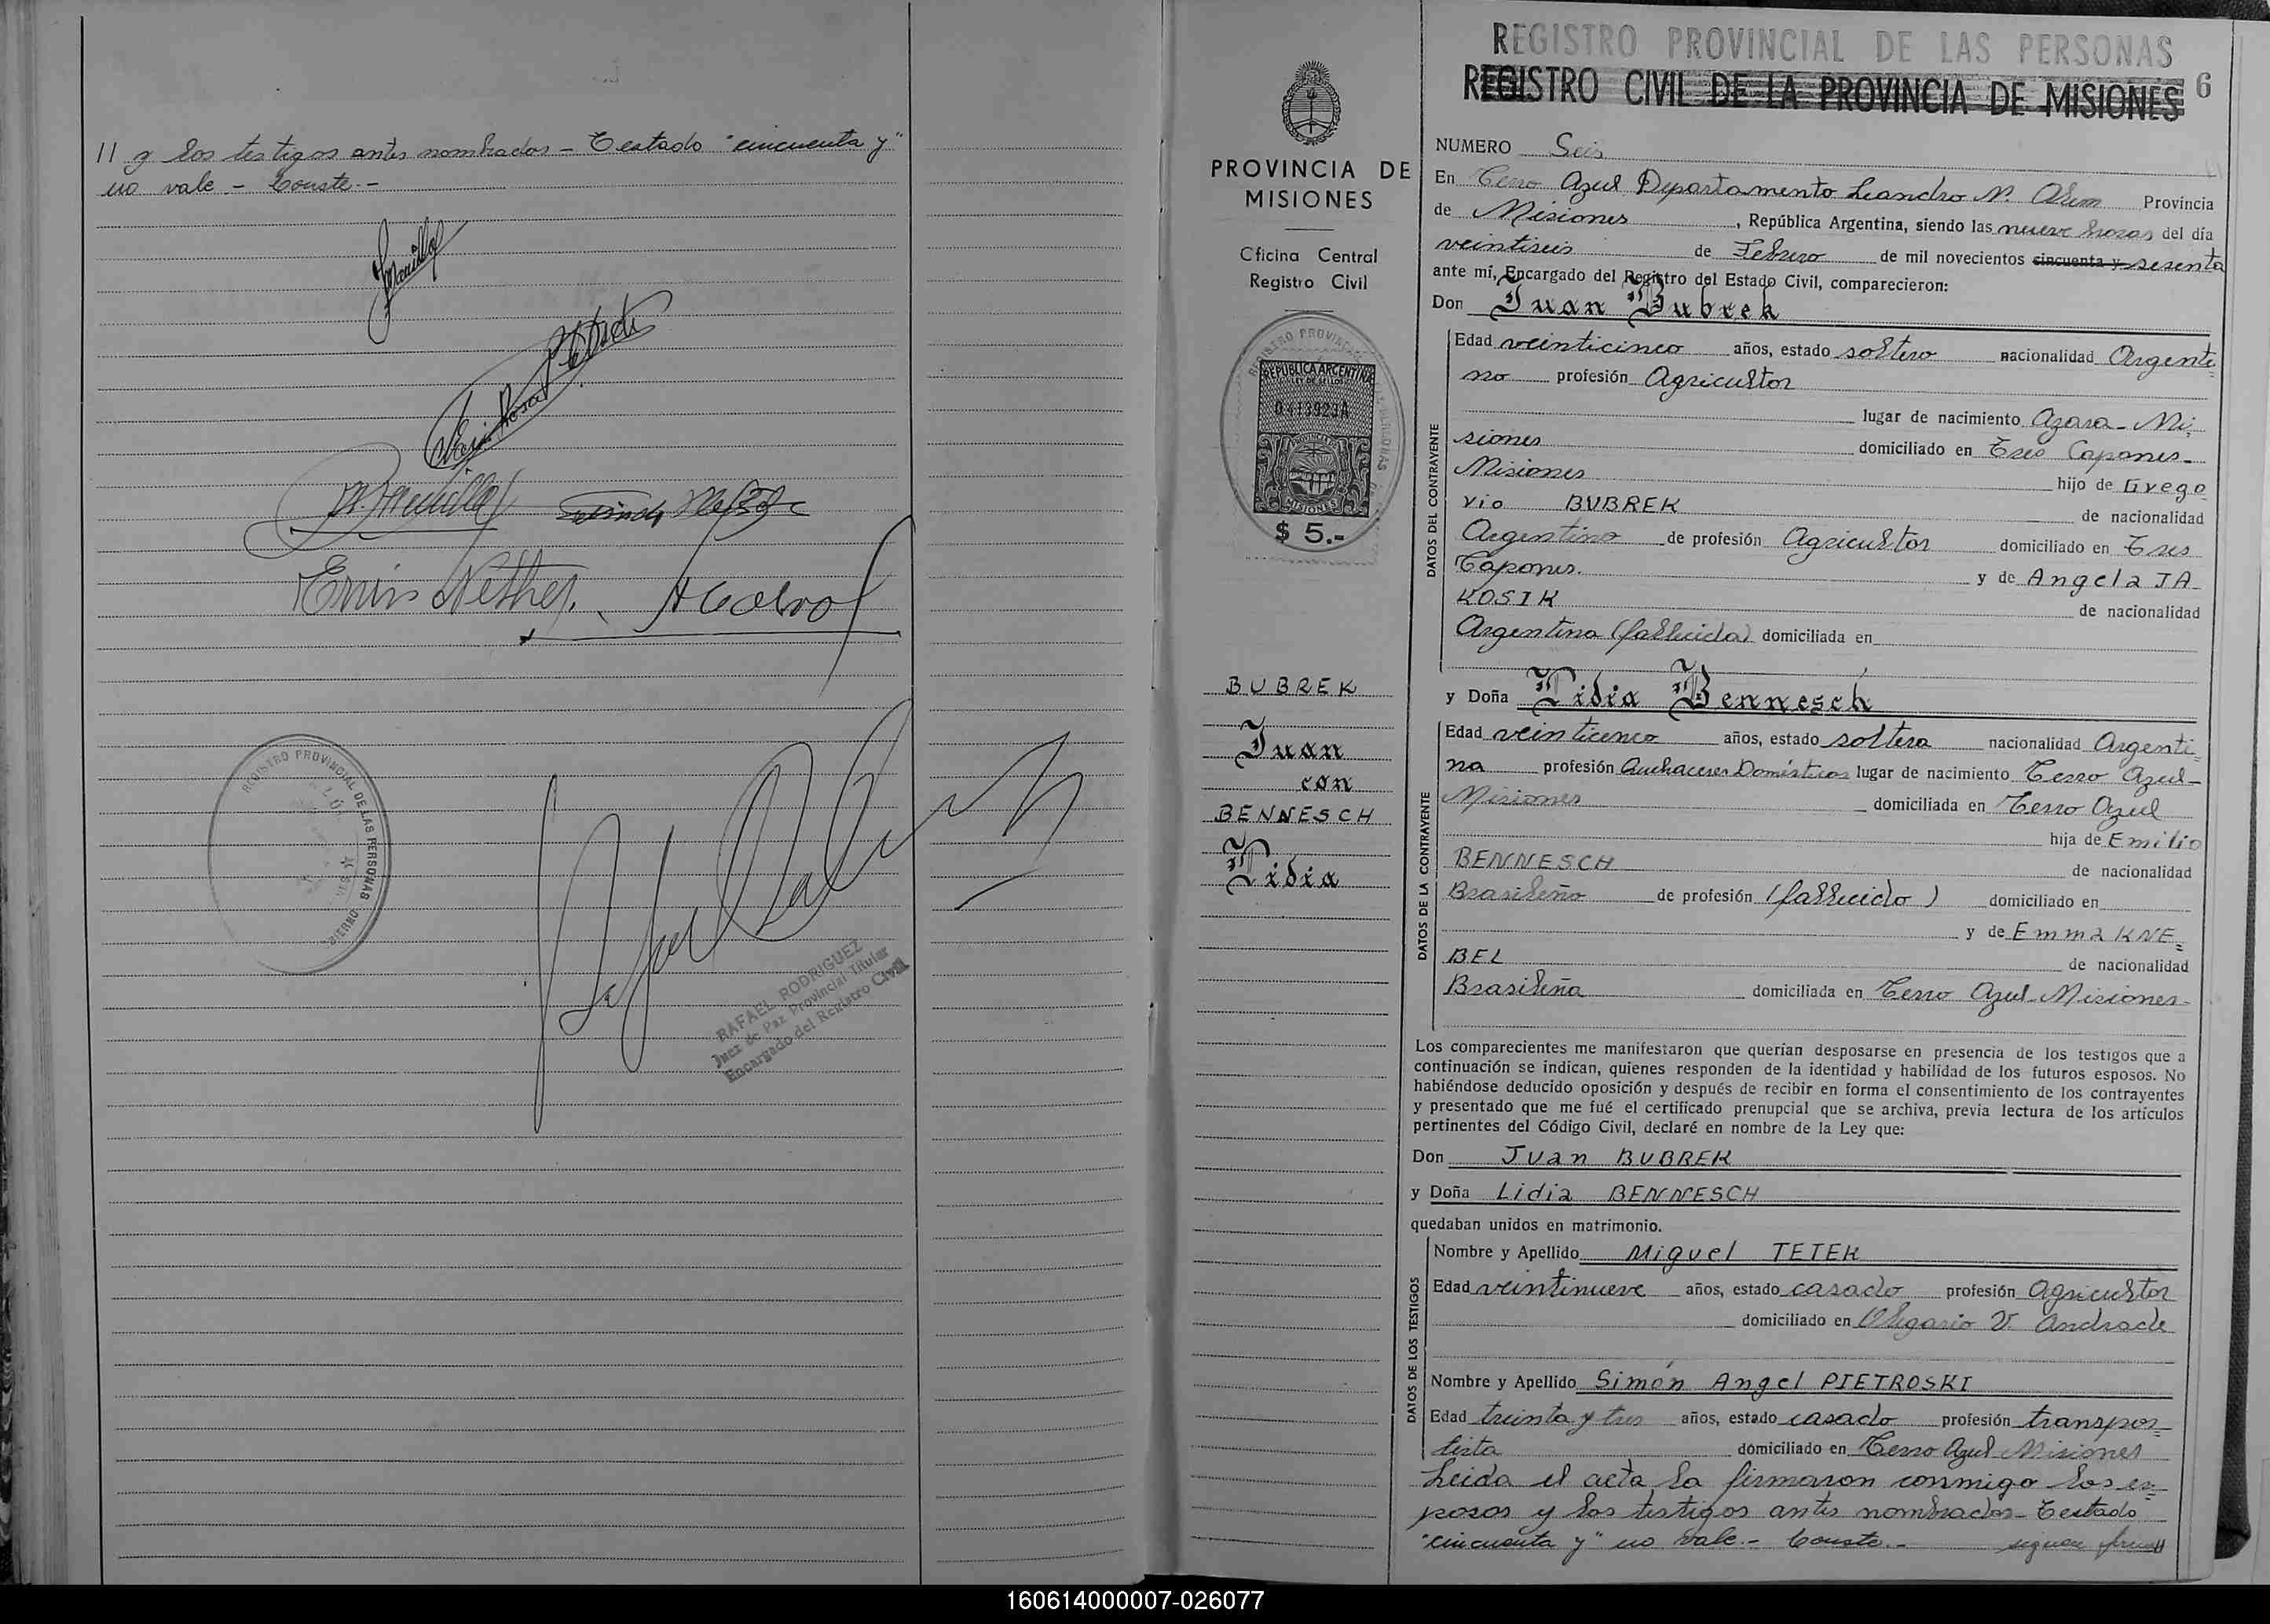 11 y los testigos antes nombrados - Testado "cincuenta y"
no vale - Conste.-
Erwin Nether
REGISTRO PROVINCIAL DE LAS PERSONAS
RAFAEL RODRIGUEZ
Juez de Paz Provincial Titular
Encargado del Registro Civil
PROVINCIA DE
MISIONES
Oficina Central
Registro Civil
REGISTRO PROVINCIAL
REPUBLICA ARGENTINA
LEY DE SELLOS
0413923A
MISIONES
$ 5.-
BUBREK
Juan
con
BENNESCH
Lidia
REGISTRO PROVINCIAL DE LAS PERSONAS
REGISTRO CIVIL DE LA PROVINCIA DE MISIONES
6
NUMERO Seis
En Cerro Azul Departamento Leandro N. Alem Provincia
de Misiones, República Argentina, siendo las nueve horas del día
veintiseis de Febrero de mil novecientos cincuenta y sesenta
ante mí, Encargado del Registro del Estado Civil, comparecieron:
Don Juan Bubrek
DATOS DEL CONTRAYENTE
Edad veinticinco años, estado soltero nacionalidad Argenti=
no profesión Agricultor
lugar de nacimiento Azara - Mi=
siones domiciliado en Tres Capones-
Misiones hijo de Grego
rio BUBREK de nacionalidad
Argentino de profesión Agricultor domiciliado en Tres
Capones. y de Angela JA
KOSIK de nacionalidad
Argentina (fallecida) domiciliada en
y Doña Lidia Bennesch
DATOS DE LA CONTRAYENTE
Edad veinticinco años, estado soltera nacionalidad Argenti=
na profesión Quehaceres Domésticos lugar de nacimiento Cerro Azul-
Misiones domiciliada en Cerro Azul
hija de Emilio
BENNESCH de nacionalidad
Brasileño de profesión (fallecido) domiciliado en
y de Emma KNE=
BEL de nacionalidad
Brasileña domiciliada en Cerro Azul-Misiones-
Los comparecientes me manifestaron que querían desposarse en presencia de los testigos que a
continuación se indican, quienes responden de la identidad y habilidad de los futuros esposos. No
habiéndose deducido oposición y después de recibir en forma el consentimiento de los contrayentes
y presentado que me fué el certificado prenupcial que se archiva, previa lectura de los artículos
pertinentes del Código Civil, declaré en nombre de la Ley que:
Don Juan BUBREK
y Doña Lidia BENNESCH
quedaban unidos en matrimonio.
DATOS DE LOS TESTIGOS
Nombre y Apellido Miguel TETEK
Edad veintinueve años, estado casado profesión Agricultor
domiciliado en Olegario V. Andrade
Nombre y Apellido Simón Angel PIETROSKI
Edad treinta y tres años, estado casado profesión transpor=
tista domiciliado en Cerro Azul Misiones
Leida el acta la firmaron conmigo los es=
posos y los testigos antes nombrados- Testado
"cincuenta y" no vale.- Conste.- siguen firmas
160614000007-026077